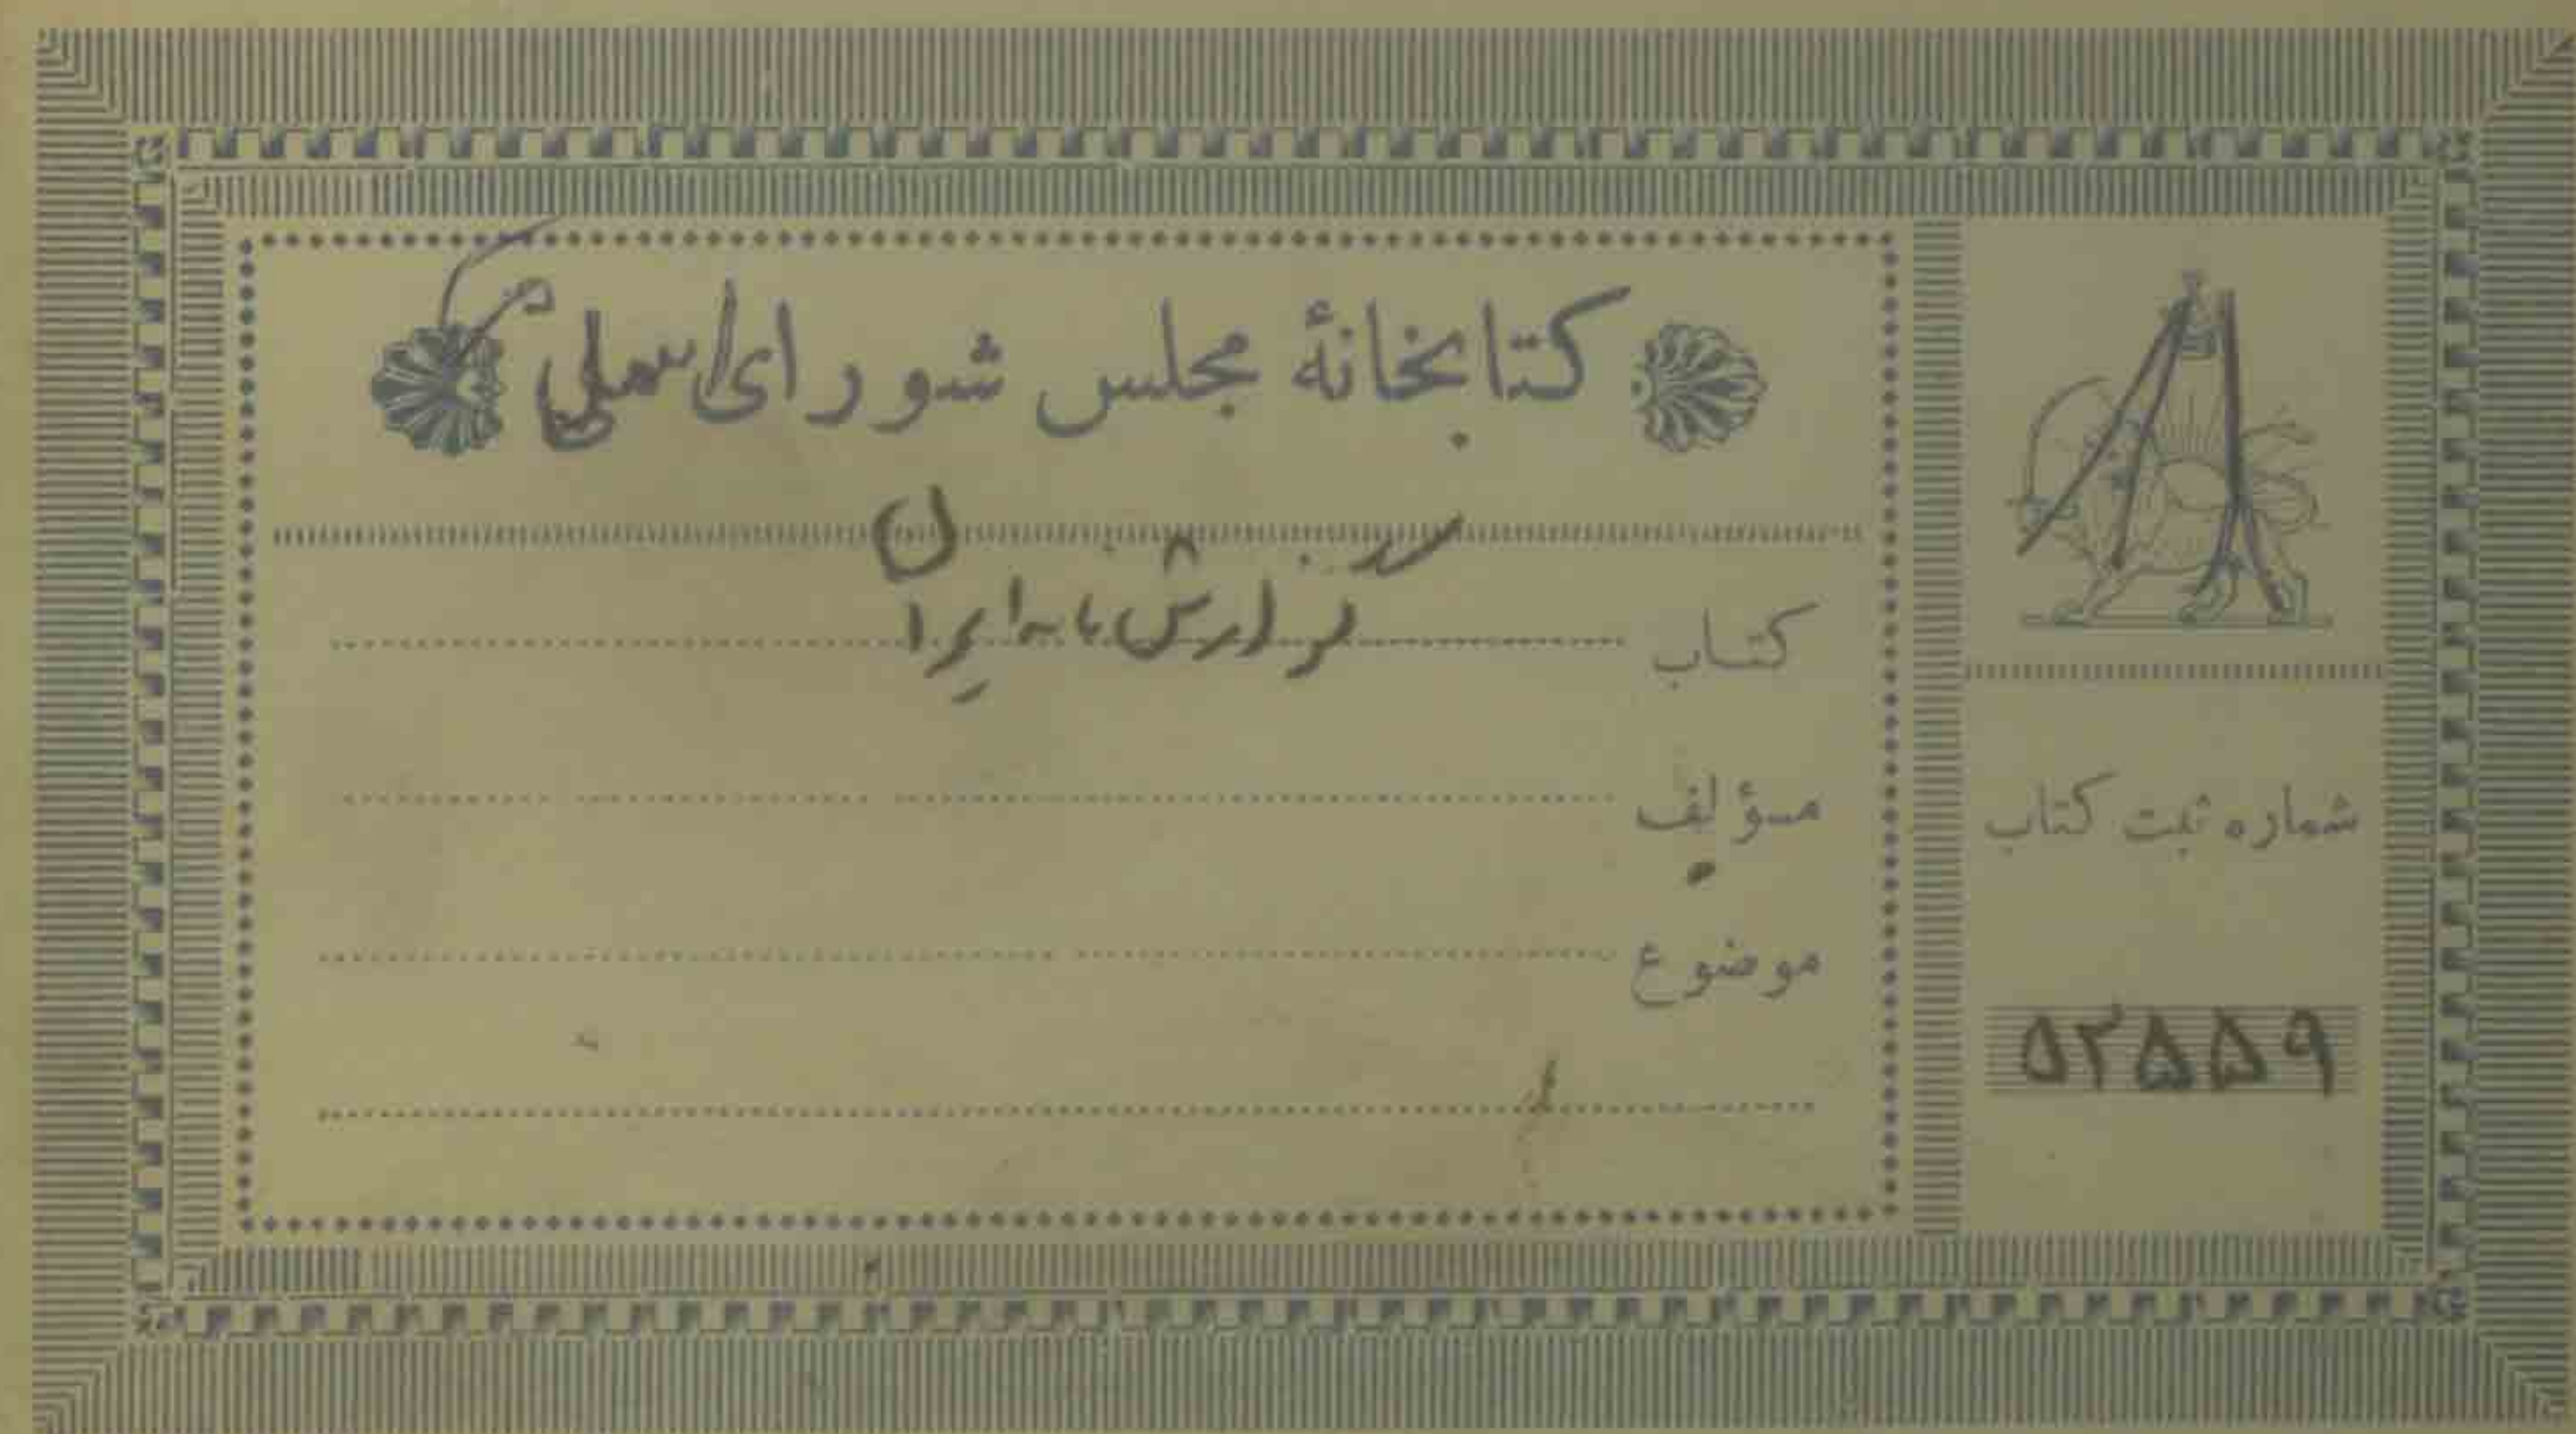 کتابخانهٔ مجلس شورای ملی
کتاب گزارش نامه ایران
مؤلف
موضوع
شماره ثبت کتاب
۵۲۵۵۹